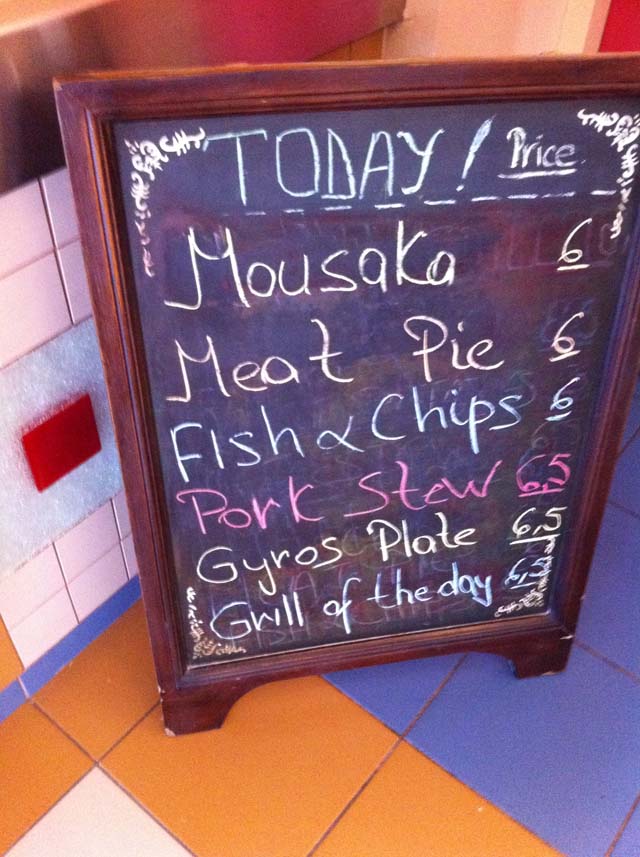 TODAY! Price
Mousaka 6
Meat Pie 6
Fish & Chips 6
Pork Stew 6,5
Gyros Plate 6,5
Grill of the day 6,5